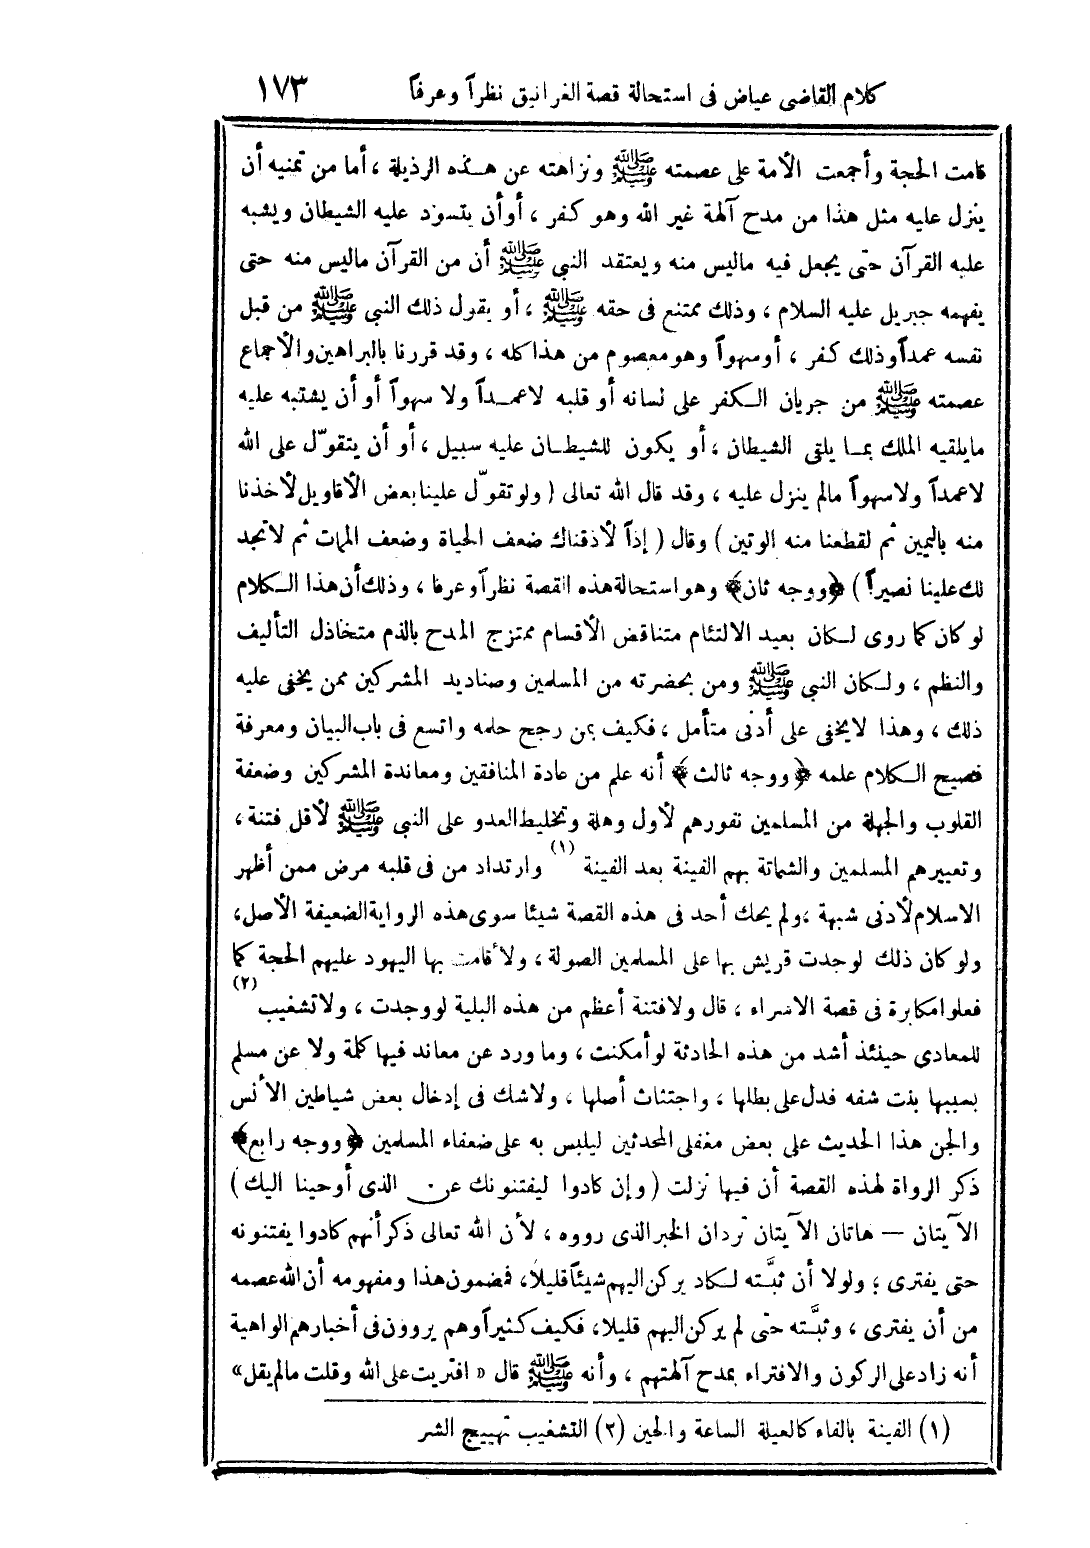 كلام القاضى عياض فى استحالة قصة الغرانيق نظراً وعرفاً ١٧٣
قامت الحجة وأجمعت الأمة على عصمته ﷺ ونزاهته عن هذه الرذيلة ، أما من تمنيه أن
ينزل عليه مثل هذا من مدح آلهة غير الله وهو كفر ، أو أن يتسوّد عليه الشيطان ويشبه
عليه القرآن حتى يجعل فيه ماليس منه ويعتقد النبى ﷺ أن من القرآن ماليس منه حتى
يفهمه جبريل عليه السلام ، وذلك ممتنع فى حقه ﷺ ، أو يقول ذلك النبى ﷺ من قبل
نفسه عمداً وذلك كفر ، أوسهواً وهو معصوم من هذا كله ، وقد قررنا بالبراهين والأجماع
عصمته ﷺ من جريان الكفر على لسانه أو قلبه لاعمداً ولا سهواً أو أن يشتبه عليه
مايلقيه الملك بما يلقى الشيطان ، أو يكون للشيطان عليه سبيل ، أو أن يتقوّل على الله
لاعمداً ولاسهواً مالم ينزل عليه ، وقد قال الله تعالى ( ولو تقوّل علينا بعض الأقاويل لأخذنا
منه باليمين ثم لقطعنا منه الوتين ) وقال ( إذاً لأذقناك ضعف الحياة وضعف الممات ثم لاتجد
لك علينا نصيراً ) ﴿ووجه ثان﴾ وهو استحالة هذه القصة نظراً وعرفا ، وذلك أن هذا الكلام
لو كان كما روى لكان بعيد الالتئام متناقض الأقسام ممتزج المدح بالذم متخاذل التأليف
والنظم ، ولكان النبى ﷺ ومن بحضرته من المسلمين وصناديد المشركين ممن يخفى عليه
ذلك ، وهذا لايخفى على أدنى متأمل ، فكيف بمن رجح حلمه واتسع فى باب البيان ومعرفة
فصيح الكلام علمه ﴿ووجه ثالث﴾ أنه علم من عادة المنافقين ومعاندة المشركين وضعفة
القلوب والجهلة من المسلمين نفورهم لأول وهلة وتخليط العدو على النبى ﷺ لأقل فتنة ،
وتعييرهم المسلمين والشماتة بهم الفينة بعد الفينة (١) وارتداد من فى قلبه مرض ممن أظهر
الاسلام لأدنى شبهة ، ولم يحك أحد فى هذه القصة شيئا سوى هذه الرواية الضعيفة الأصل ،
ولو كان ذلك لوجدت قريش بها على المسلمين الصولة ، ولأقامت بها اليهود عليهم الحجة كما
فعلوا مكابرة فى قصة الاسراء ، قال ولافتنة أعظم من هذه البلية لو وجدت ، ولاتشغيب (٢)
للمعادى حينئذ أشد من هذه الحادثة لو أمكنت ، وما ورد عن معاند فيها كلمة ولا عن مسلم
بسببها بنت شفه فدل على بطلها ، واجتثاث أصلها ، ولاشك فى إدخال بعض شياطين الأنس
والجن هذا الحديث على بعض مغفلى المحدثين ليلبس به على ضعفاء المسلمين ﴿ووجه رابع﴾
ذكر الرواة لهذه القصة أن فيها نزلت ( وإن كادوا ليفتنونك عن الذى أوحينا اليك )
الآيتان — هاتان الآيتان تردان الخبر الذى رووه ، لأن الله تعالى ذكر أنهم كادوا يفتنونه
حتى يفترى ؛ ولولا أن ثبَّته لكاد يركن اليهم شيئاً قليلاً، فمضمون هذا ومفهومه أن الله عصمه
من أن يفترى ، وثبَّته حتى لم يركن اليهم قليلا، فكيف كثيراً وهم يروون فى أخبارهم الواهية
أنه زاد على الركون والافتراء بمدح آلهتهم ، وأنه ﷺ قال « افتريت على الله وقلت مالم يقل»
(١) الفينة بالفاء كالعيلة الساعة والحين (٢) التشغيب تهييج الشر